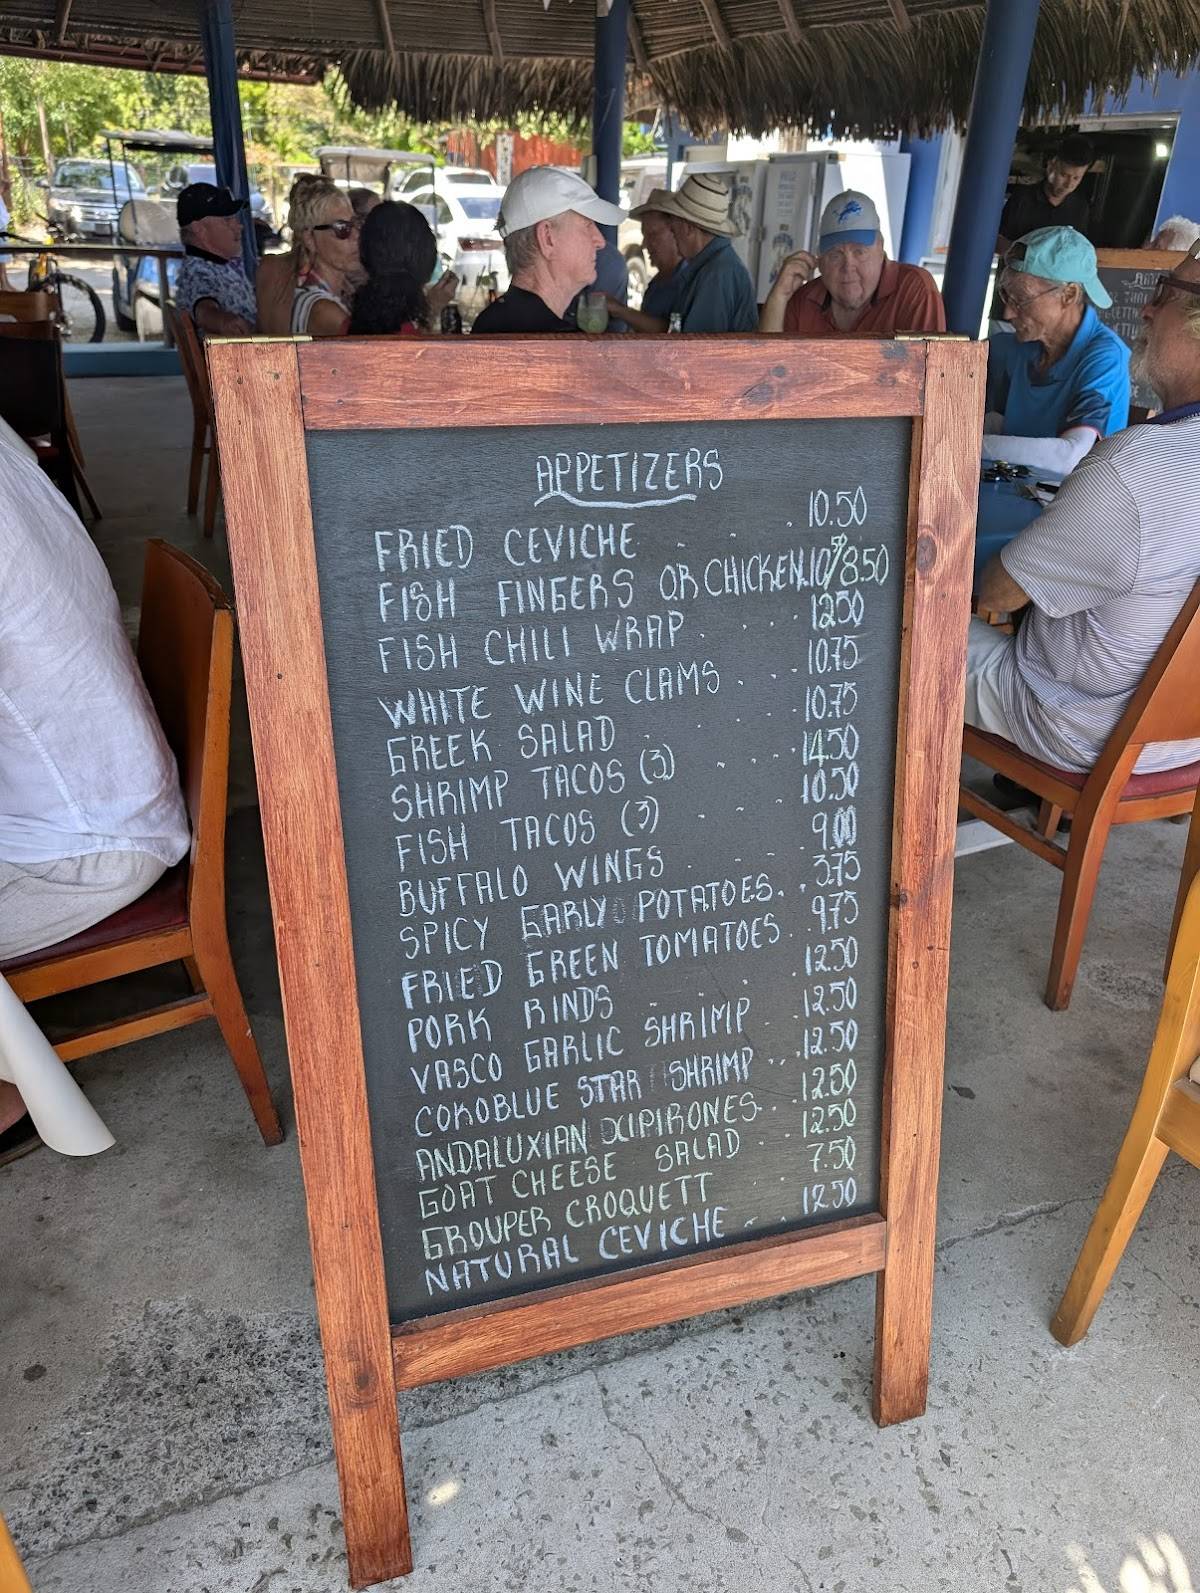 APPETIZERS
FRIED CEVICHE . . . 10.50
FISH FINGERS OR CHICKEN.10.50/8.50
FISH CHILI WRAP . . . 12.50
WHITE WINE CLAMS . . . 10.75
GREEK SALAD . . . . 10.75
SHRIMP TACOS (3) . . . . 14.50
FISH TACOS (3) . . . 10.50
BUFFALO WINGS . . . . 9.00
SPICY EARLY POTATOES . . 3.75
FRIED GREEN TOMATOES . . 9.75
PORK RINDS . . . . 12.50
VASCO GARLIC SHRIMP . . 12.50
COKOBLUE STAR SHRIMP . . . 12.50
ANDALUXIAN XIPIRONES . . . 12.50
GOAT CHEESE SALAD . . . 12.50
GROUPER CROQUETT . . 7.50
NATURAL CEVICHE . . . 12.50